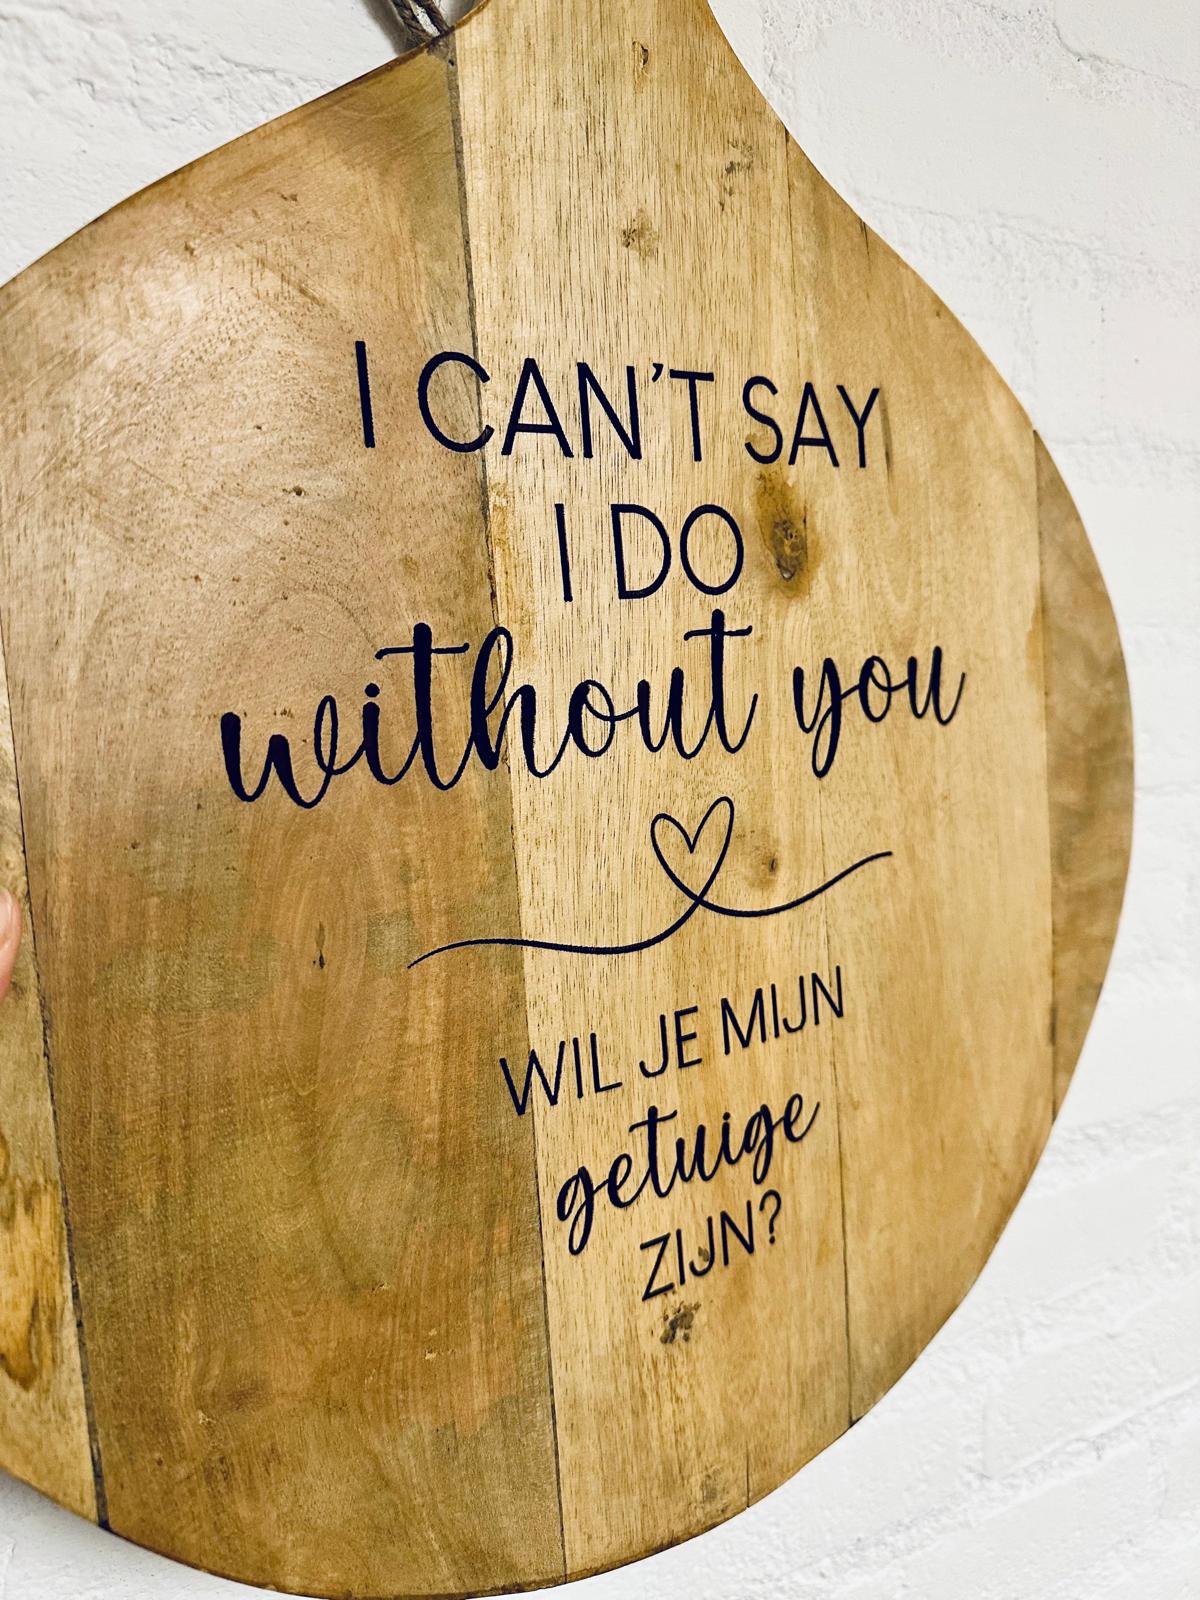 I CAN'T SAY
I DO
without you
WIL JE MIJN
getuige
ZIJN?